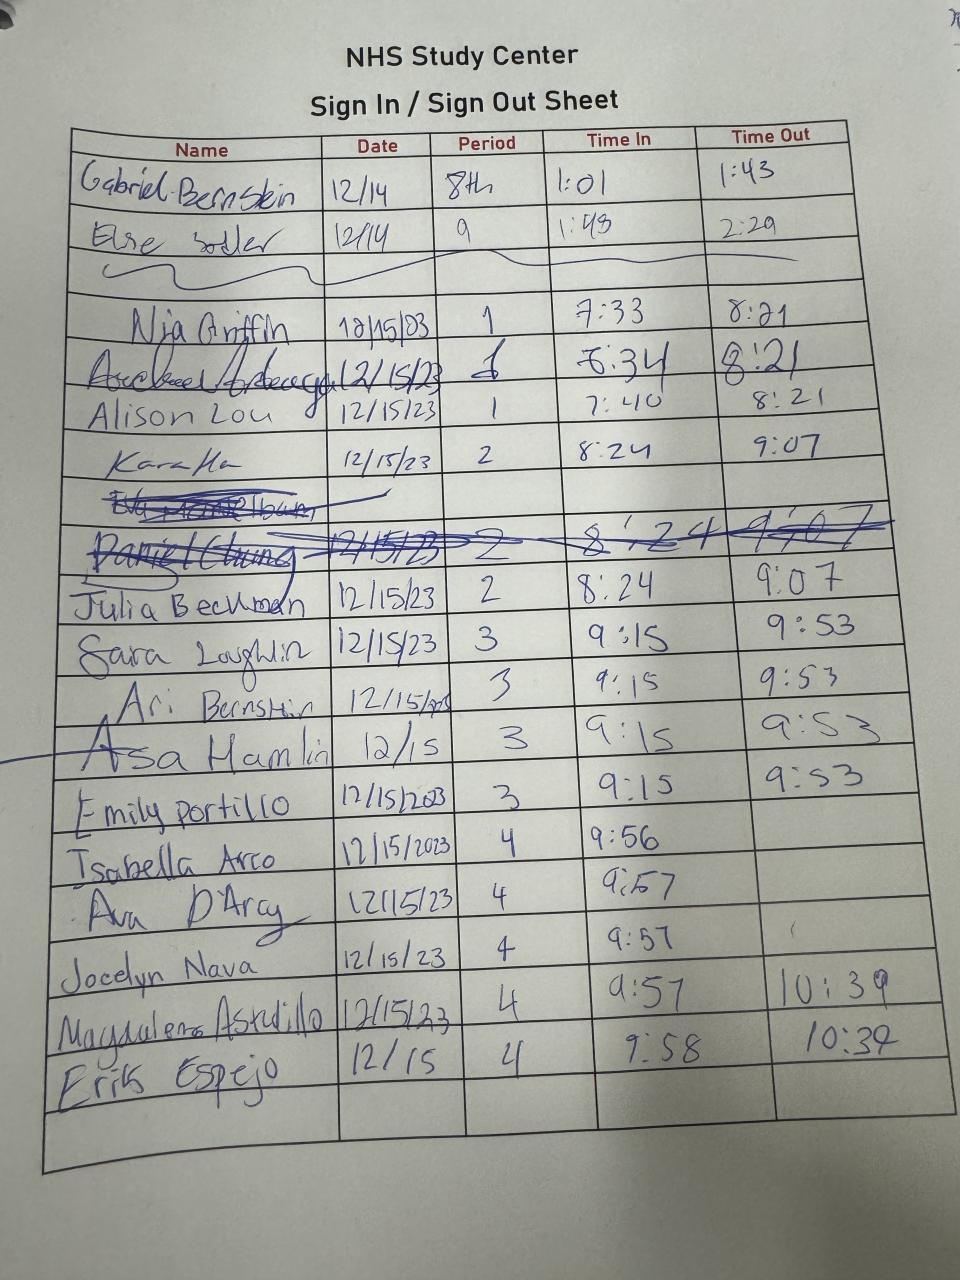 NHS Study Center
Sign In / Sign Out Sheet
Name Date Period Time In Time Out
Gabriel Bernstein 12/14 8th 1:01 1:43
Else 12/14 9 1:48 2:29
Nia Griffin 12/15/23 1 7:33 8:21
12/15/23 1 8:21
Alison Lou 12/15/23 1 7:40 8:21
Kara Ha 12/15/23 2 8:24 9:07
Daniel Chung 12/15/23 2 8:24 9:07
Julia Beckman 12/15/23 2 8:24 9:07
Sara Loughlin 12/15/23 3 9:15 9:53
Ari Bernstein 12/15/23 3 9:15 9:53
Asa Hamlin 12/15 3 9:15 9:53
Emily portillo 12/15/2023 3 9:15 9:53
Isabella Arco 12/15/2023 4 9:56
Ava D'Arcy 12/15/23 4 9:57
Jocelyn Nava 12/15/23 4 9:57
Magdalena Astudillo 12/15/23 4 9:57 10:39
Erik Espejo 12/15 4 9:58 10:39